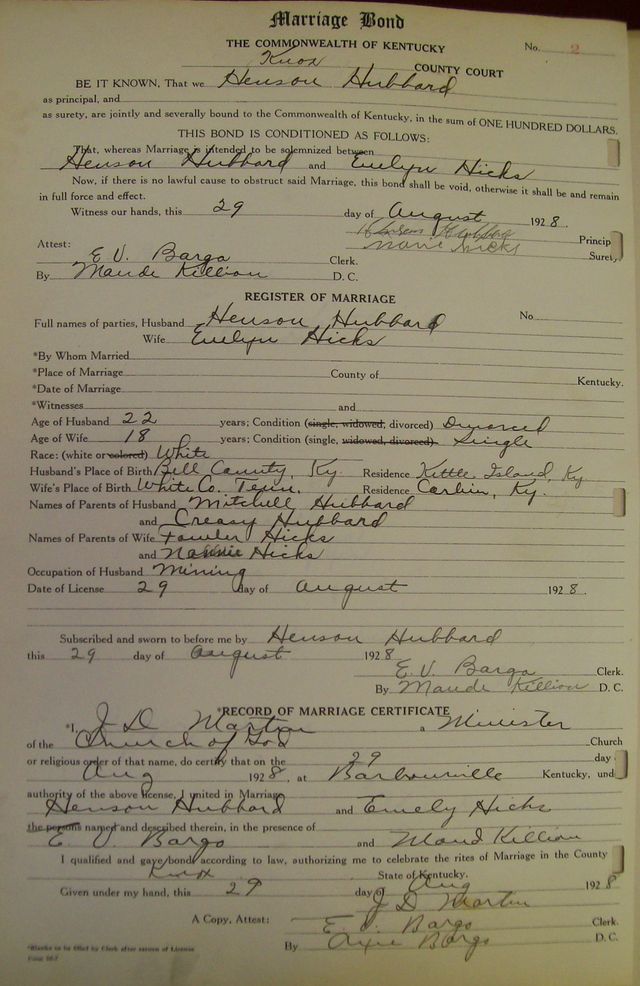 Marriage Bond
THE COMMONWEALTH OF KENTUCKY No. 2
Knox COUNTY COURT
BE IT KNOWN, That we Henson Hubbard
as principal, and
as surety, are jointly and severally bound to the Commonwealth of Kentucky, in the sum of ONE HUNDRED DOLLARS.
THIS BOND IS CONDITIONED AS FOLLOWS:
That, whereas Marriage is intended to be solemnized between
Henson Hubbard and Evelyn Hicks
Now, if there is no lawful cause to obstruct said Marriage, this bond shall be void, otherwise it shall be and remain
in full force and effect.
Witness our hands, this 29 day of August 1928.
Henson Hubbard Princip
Attest: Marie Hicks Surety
E. V. Bargo Clerk.
By Maude Killion D. C.
REGISTER OF MARRIAGE
Full names of parties, Husband Henson Hubbard No
Wife Evelyn Hicks
*By Whom Married
*Place of Marriage County of Kentucky.
*Date of Marriage
*Witnesses and
Age of Husband 22 years; Condition (single, widowed, divorced) Divorced
Age of Wife 18 years; Condition (single, widowed, divorced) Single
Race: (white or colored) White
Husband's Place of Birth Bell County, Ky. Residence Kettle Island, Ky
Wife's Place of Birth White Co. Tenn. Residence Corbin, Ky.
Names of Parents of Husband Mitchell Hubbard
and Creasy Hubbard
Names of Parents of Wife Fowler Hicks
and Hicks
Occupation of Husband Mining
Date of License 29 day of August 1928.
Subscribed and sworn to before me by Henson Hubbard
this 29 day of August 1928
E. V. Bargo Clerk.
By Maude Killion D. C.
*RECORD OF MARRIAGE CERTIFICATE
*I, J D Martin a Minister
of the Church of God Church
or religious order of that name, do certify that on the 29 day
Aug 1928, at Barbourville Kentucky, und
authority of the above license, I united in Marriage
Henson Hubbard and Emely Hicks
the persons named and described therein, in the presence of
E V. Bargo and Maud Killian
I qualified and gave bond according to law, authorizing me to celebrate the rites of Marriage in the County
Knox State of Kentucky.
Given under my hand, this 29 day of Aug 1928
J D Martin
A Copy, Attest: E. V. Bargo Clerk.
By Bargo D. C.
*Blanks to be filled by Clerk after return of License